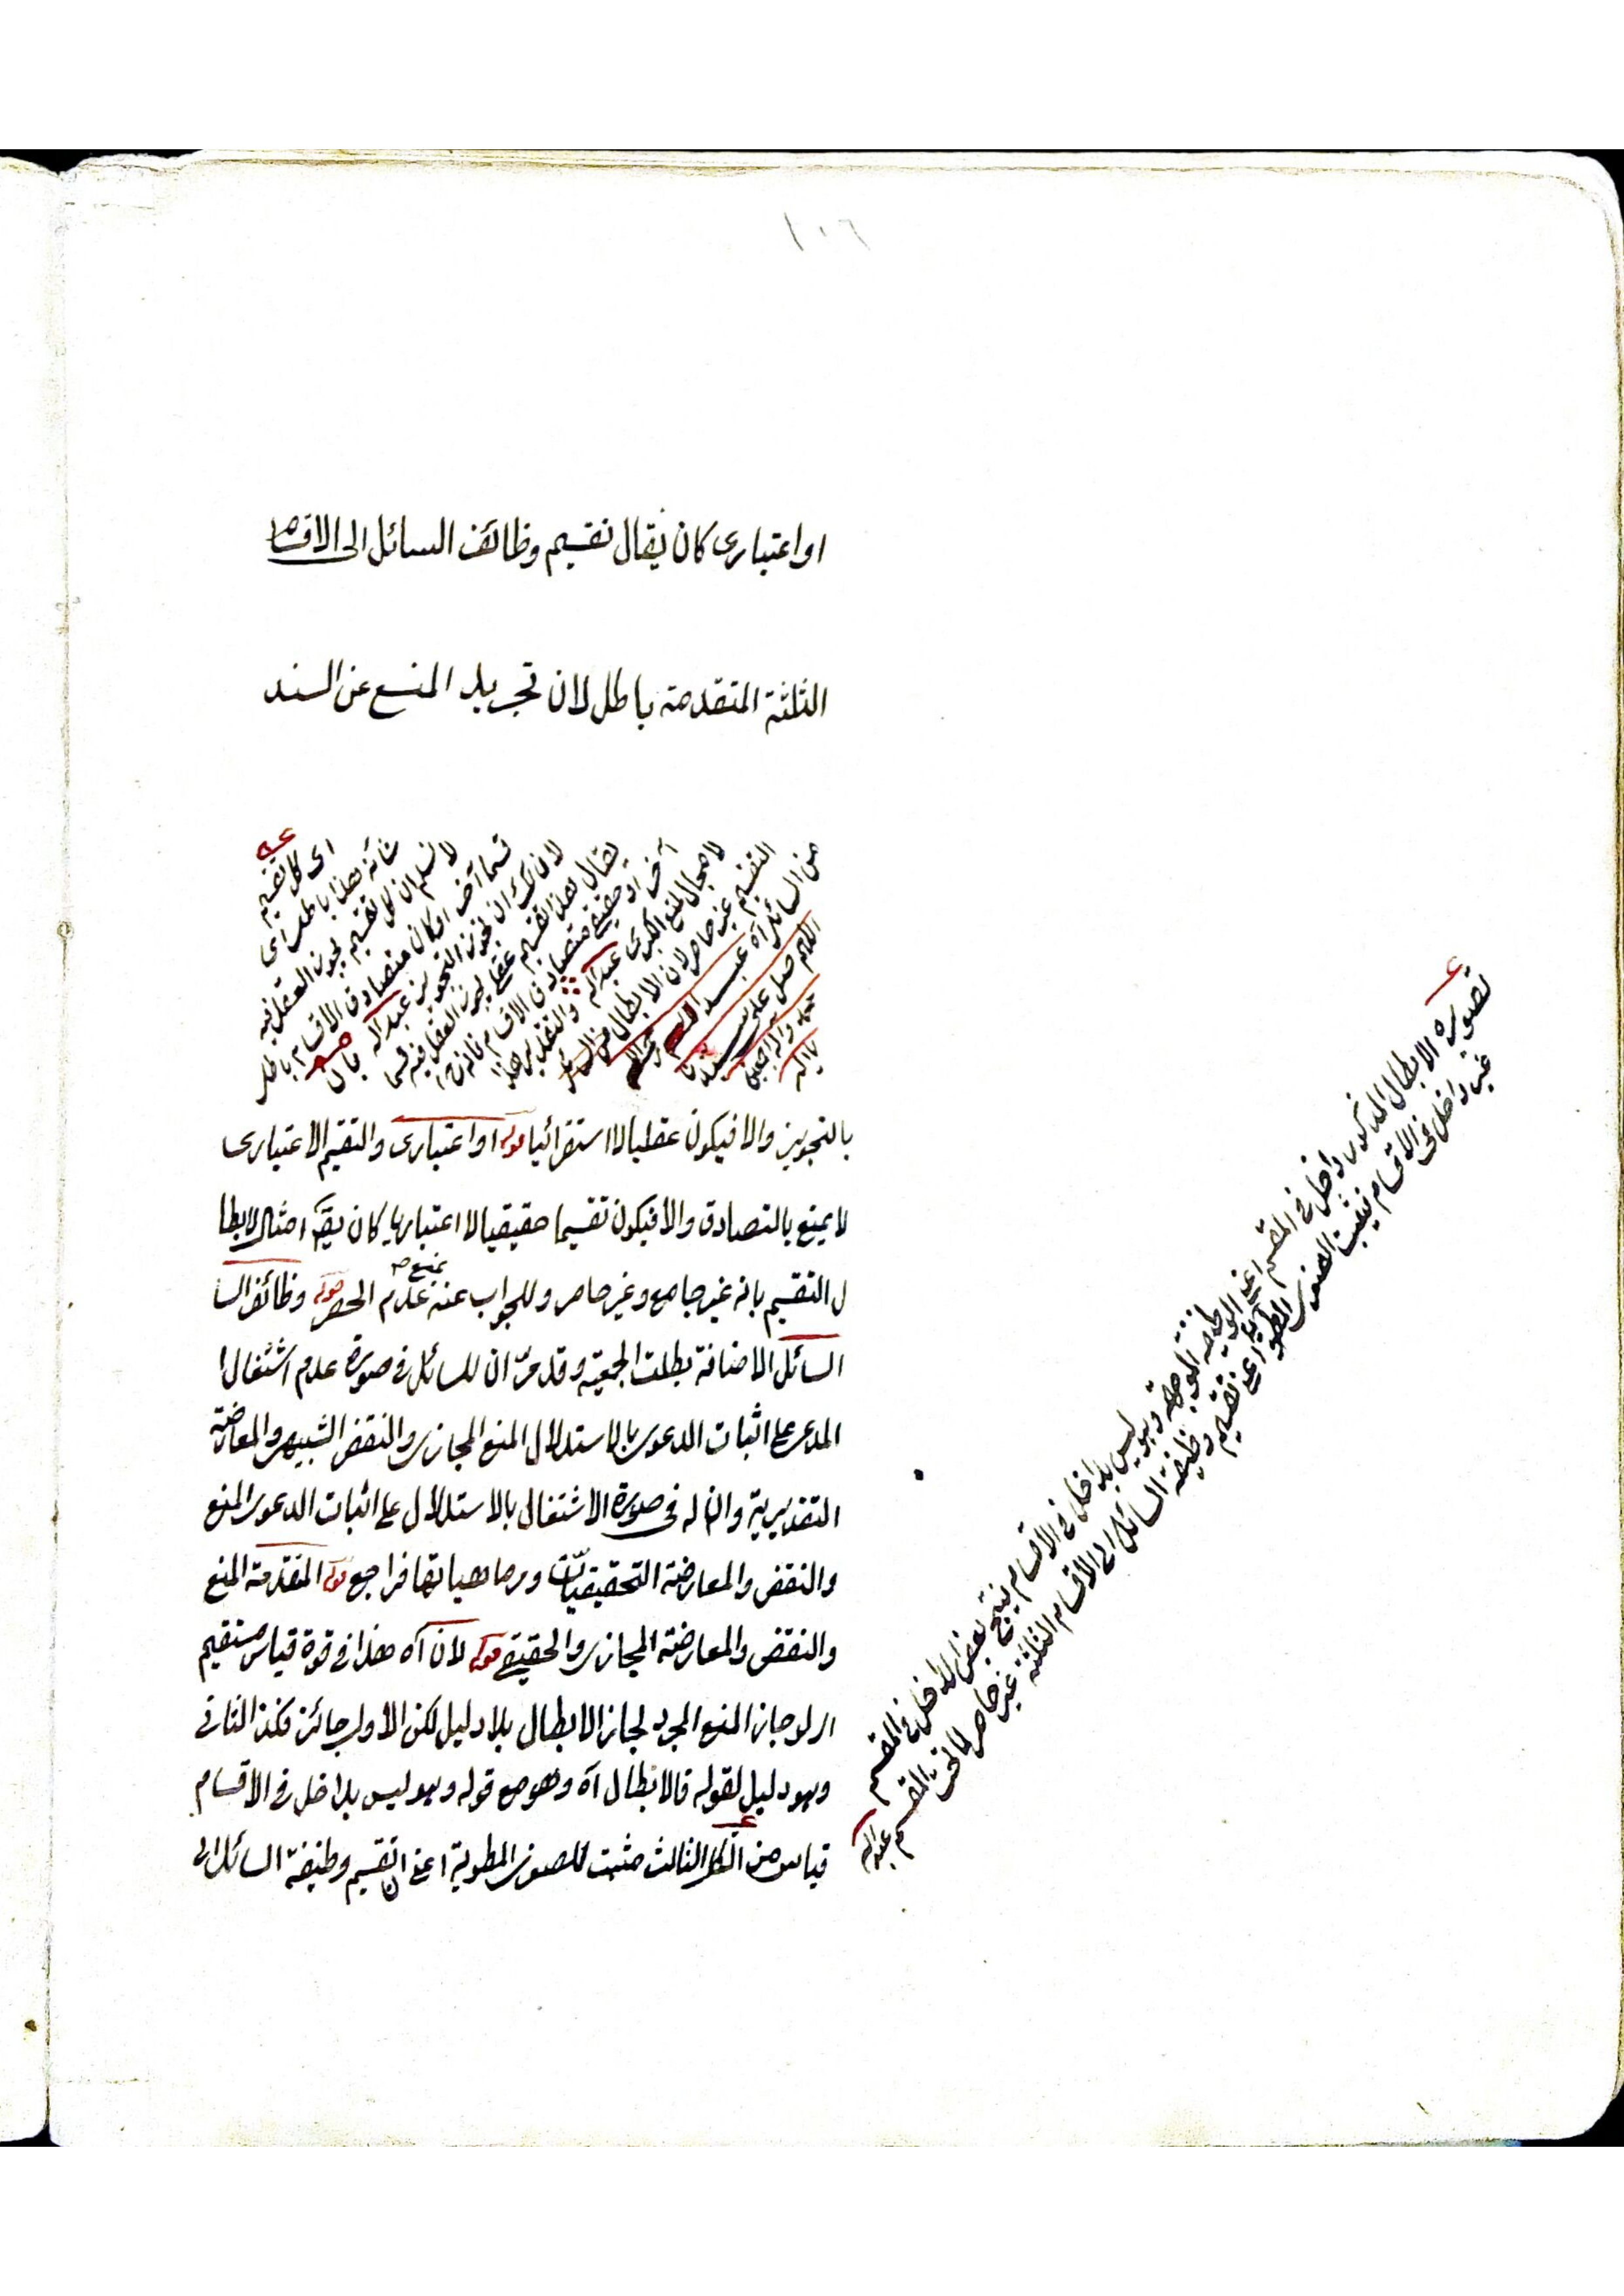 ١٠٦
او اعتباري كان يقال تقسيم وظائف السائل الى الاقسام
الثلثة المتقدمة باطل لان تجريد المنع عن السند
اى كل تقسيم
شأنه هذا باطل اى
لا نسلم ان كل تقسيم يجوز العقل فيه
قسما آخر او كان متصادق الاقسام باطل
يقال هذا التقسيم عقلي يجوز العقل فيه قسما
آخر او حقيقي متصادق الاقسام
لا مجال لمنع الكبرى عبد الله والتقدير هكذا
التقسيم غير حاصر لان الابطال من السائل
من السائل آه عبد الله
اللهم صل على سيدنا
محمد وآله اجمعين
يا الله
بالتجويز والا فيكون عقليا لا استقرائيا قوله او اعتباري والتقسيم الاعتباري
لا يمنع بالتصادق والا فيكون تقسيما حقيقيا لا اعتباريا كان يق امثال لابطا
ل التقسيم بانه غير جامع وغير حاصر وللجواب عنه بمنع عدم الحصر قوله وظائف السا
السائل الاضافة بطلت الجمعية وقد مرّ ان للسائل في صورة عدم اشتغال
المدعى على اثبات الدعوى بالاستدلال المنع المجازى والنقض الشبيهى والمعارضة
التقديرية وان له فى صورة الاشتغال بالاستدلال على اثبات الدعوى المنع
والنقض والمعارضة التحقيقيّات ومر ماهياتها فراجع قوله المتقدمة المنع
والنقض والمعارضة المجازى والحقيقى قوله لان آه هذا فى قوة قياس مستقيم
اى لو جاز المنع المجرد لجاز الابطال بلا دليل لكن الاول جائز فكذا الثانى
وهو دليل لقوله فالابطال آه وهو مع قوله وهو ليس بداخل فى الاقسام
قياس من الشكل الثالث مثبت للصغرى المطوية اعنى ان تقسيم وظيفة السائل الى
تصويره الابطال المذكور داخل فى المقسم اعنى الوظيفة الموجهة وهو ليس بداخل فى الاقسام ينتج بعض الداخل فى المقسم
غير داخل فى الاقسام فيثبت الصغرى المطوية اعنى تقسيم وظيفة السائل الى الاقسام الثلثة غير حاصر لما تحت المقسم عبد الله